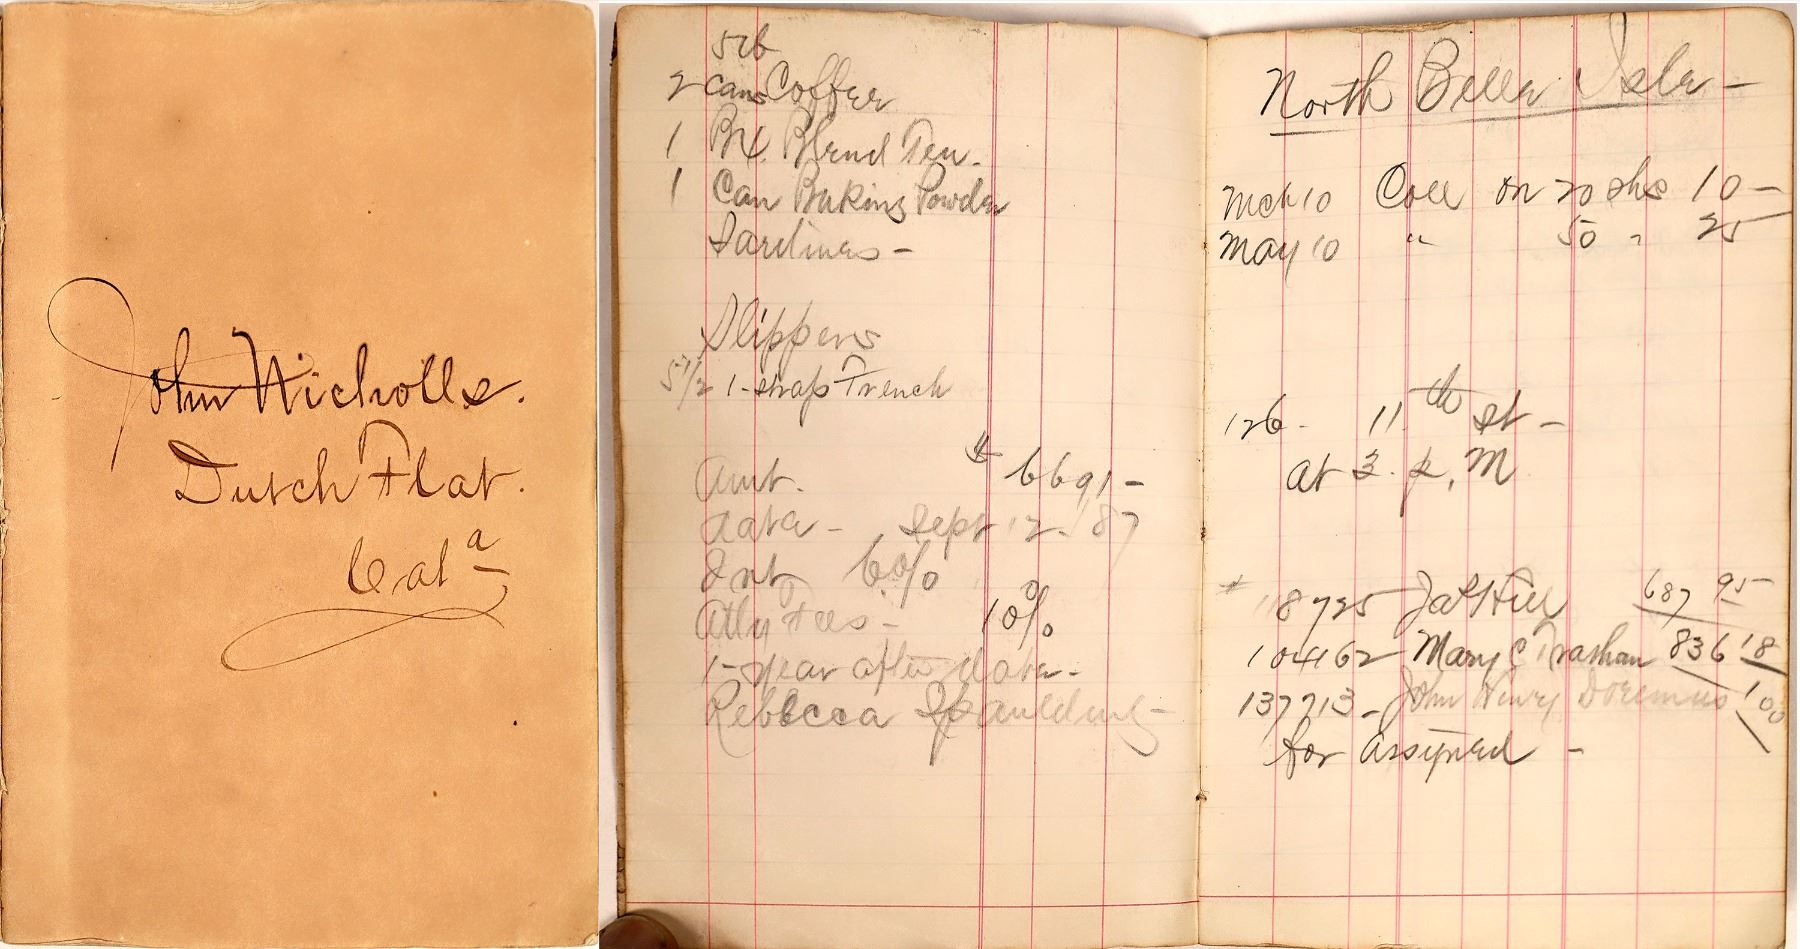 John Nicholls.
Dutch Flat.
Cal a
5 lb
2 cans Coffee
1 Bx. Blend Tea.
1 Can Baking Powder
Sardines -
Slippers
5 1/2 1-strap French
Amt. $ 6691-
date - Sept 12. '87
Int 6.%
Atty Fees - 10%
1-year after date-
Rebecca Spaulding-
North Belle Isle -
Mch 10 Coll on 20 shs 10-
May 10 " 50 " 25
126. 11.th st -
at 3. p. M
118725 Jas Hill 687 95
104162 Mary C Trathan 836 18
137713 - John Henry Doremus 100
for assigned -